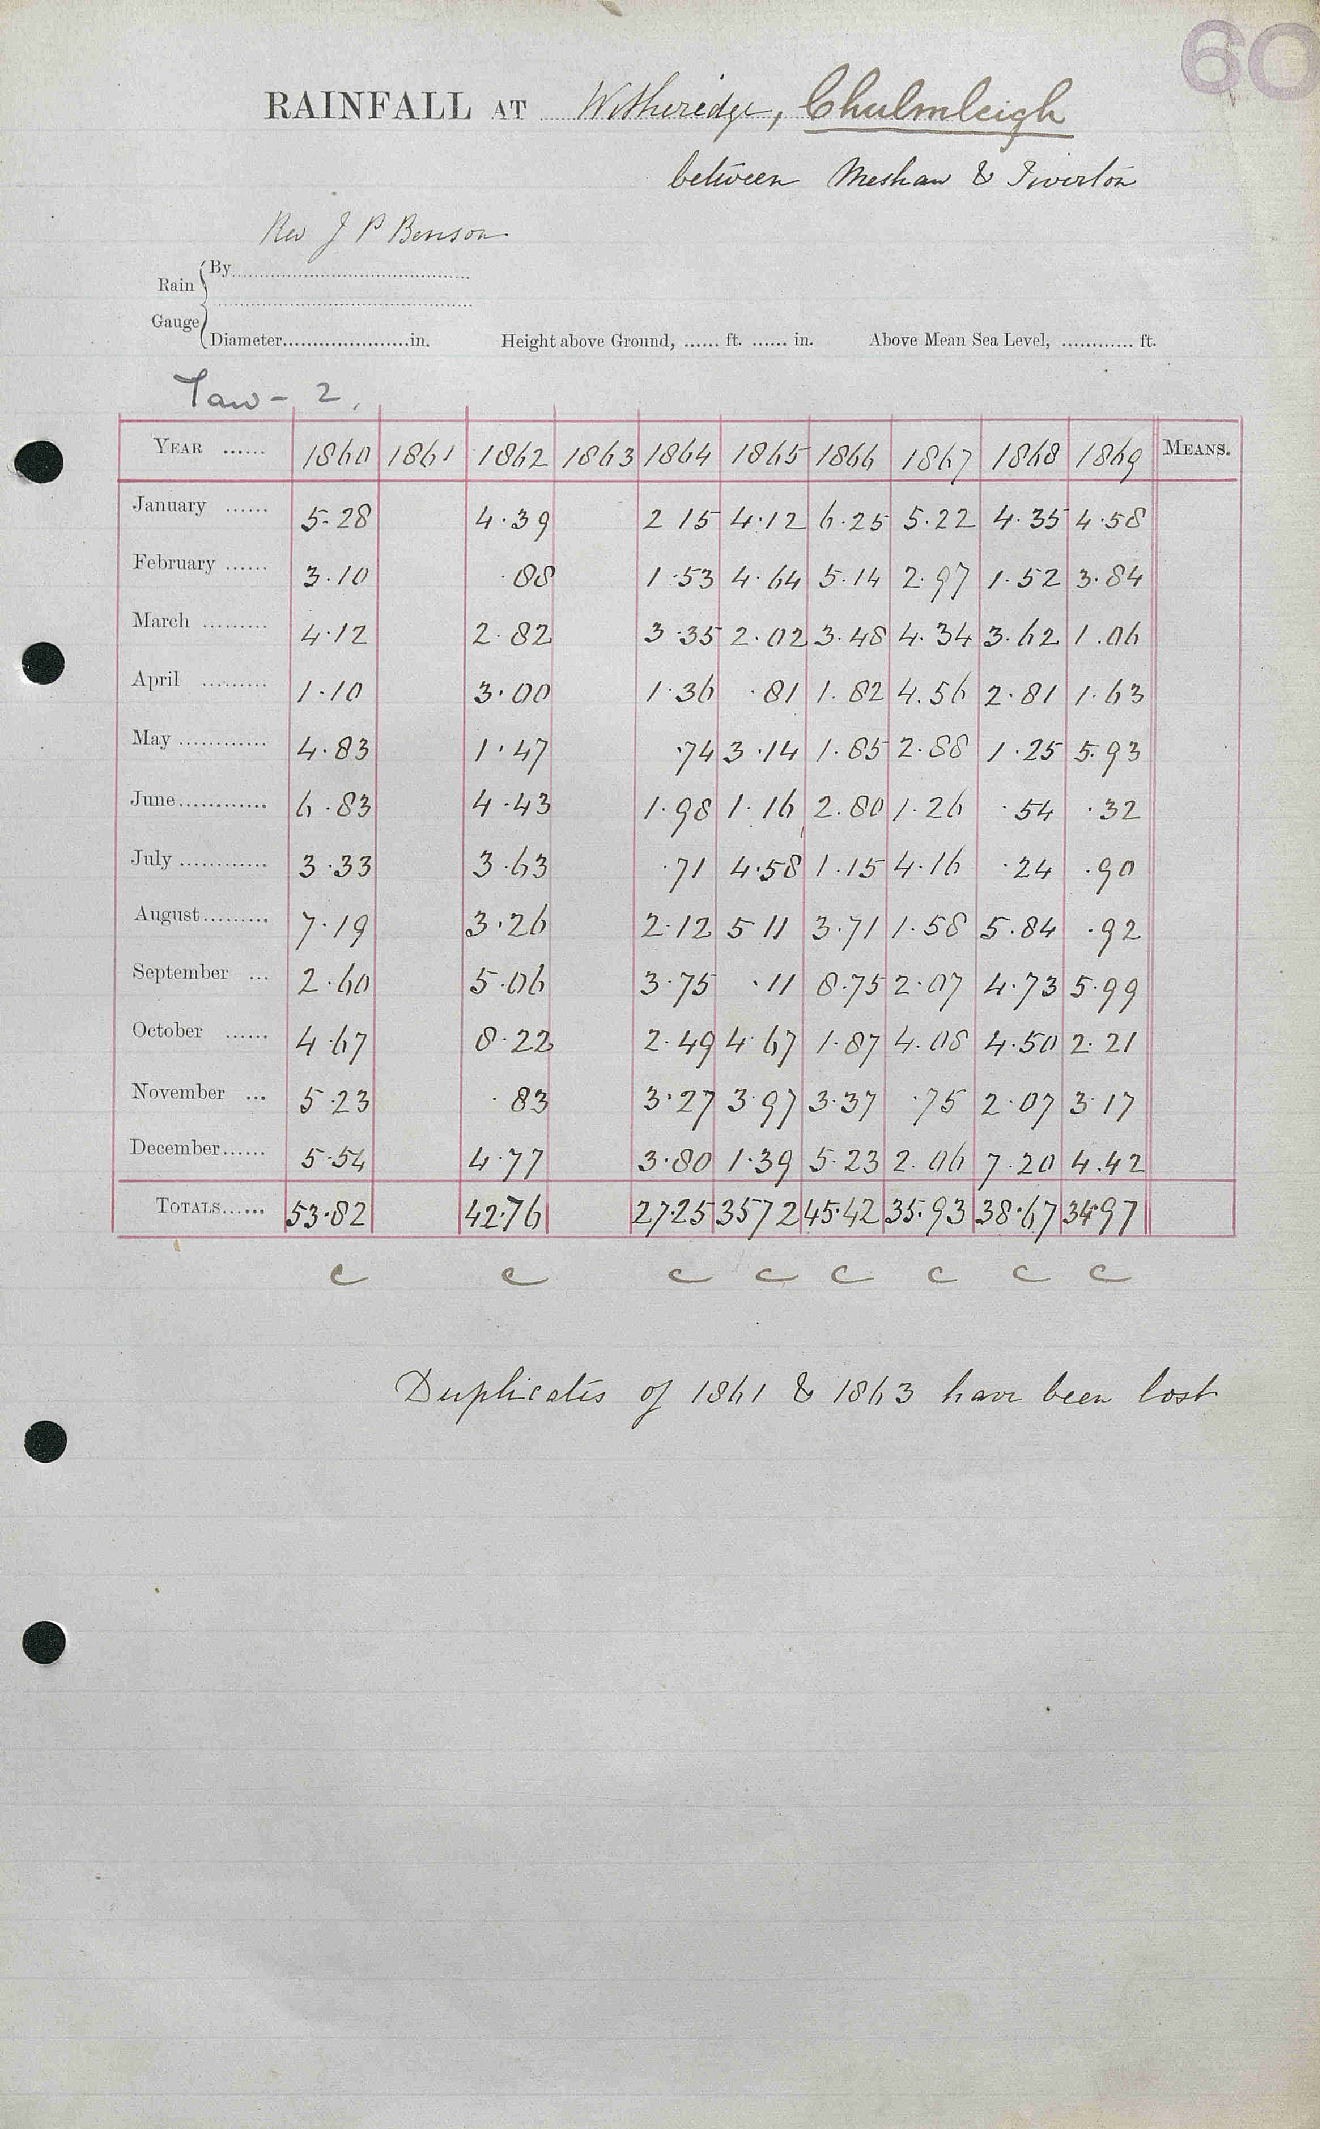 60
RAINFALL AT Witheridge, Chulmleigh
between Meshaw & Tiverton
Rev J P Benson
Rain Gauge { By..............................
..............................
Diameter.....................in. Height above Ground, ...... ft. ...... in. Above Mean Sea Level, ............ ft.
Taw - 2.
YEAR ...... 1860 1861 1862 1863 1864 1865 1866 1867 1868 1869 MEANS.
January ...... 5.28 4.39 2 15 4.12 6.25 5.22 4.35 4.58
February ...... 3.10 .88 1.53 4.64 5.14 2.97 1.52 3.84
March ......... 4.12 2.82 3.35 2.02 3.48 4.34 3.62 1.06
April ......... 1.10 3.00 1.36 .81 1.82 4.56 2.81 1.63
May ............ 4.83 1.47 .74 3.14 1.85 2.88 1.25 5.93
June............ 6.83 4.43 1.98 1.16 2.80 1.26 .54 .32
July ............ 3.33 3.63 .71 4.58 1.15 4.16 .24 .90
August......... 7.19 3.26 2.12 5 11 3.71 1.58 5.84 .92
September ... 2.60 5.06 3.75 .11 8.75 2.07 4.73 5.99
October ...... 4.67 8.22 2.49 4.67 1.87 4.08 4.50 2.21
November ... 5.23 .83 3.27 3.97 3.37 .75 2.07 3.17
December...... 5.54 4.77 3.80 1.39 5.23 2.06 7.20 4.42
TOTALS...... 53.82 42.76 27.25 35 72 45.42 35.93 38.67 34.97
c c c c c c c c
Duplicates of 1861 & 1863 have been lost